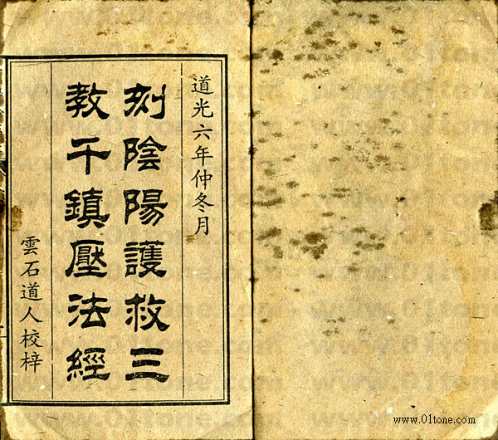 道光六年仲冬月
刻陰陽護救三
教千鎮壓法經
雲石道人校梓
www.01tone.com